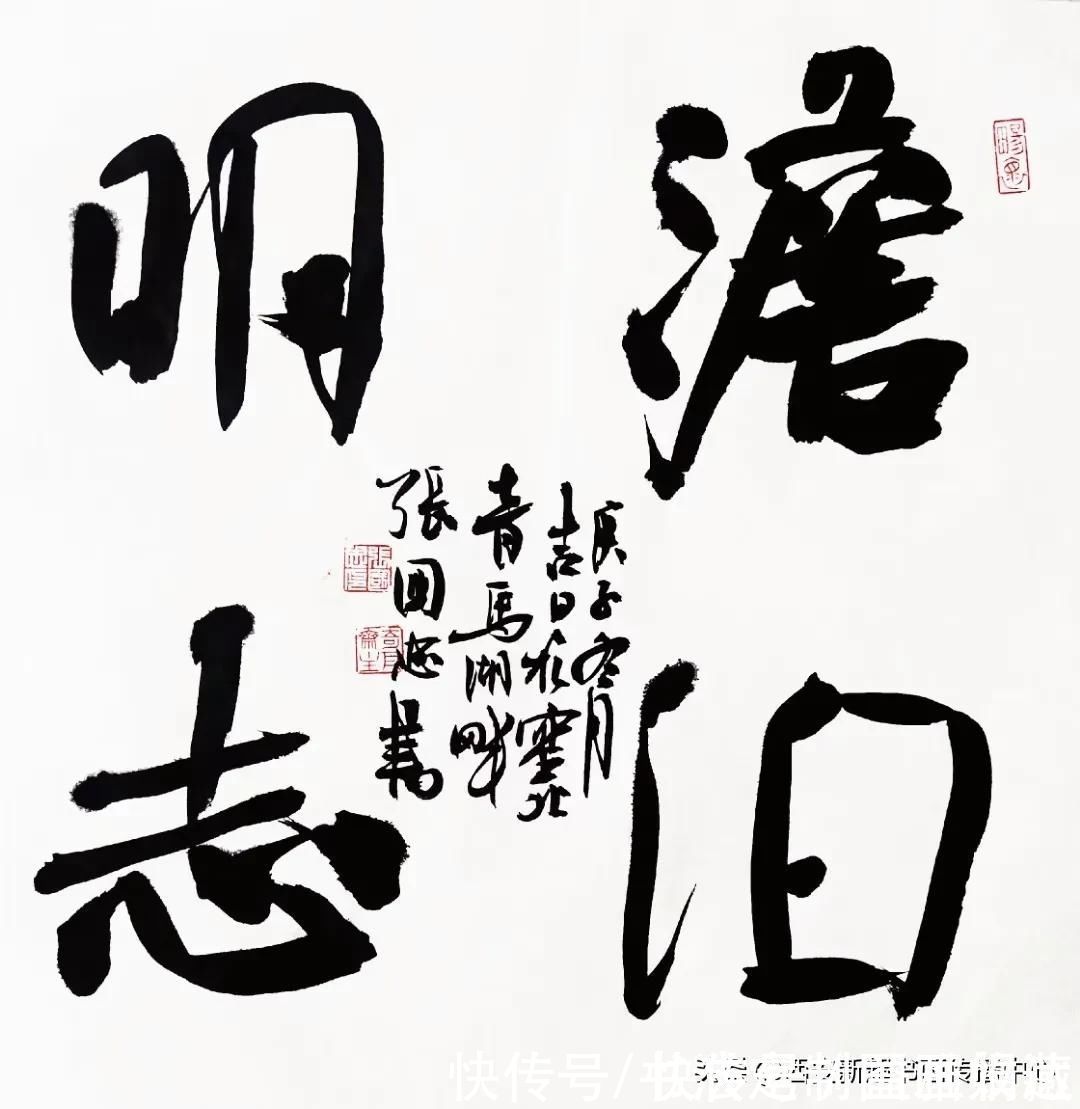 澹泊
明志
庚子冬月
吉日於塞北
青馬湖畔
張國忠書
快传号/